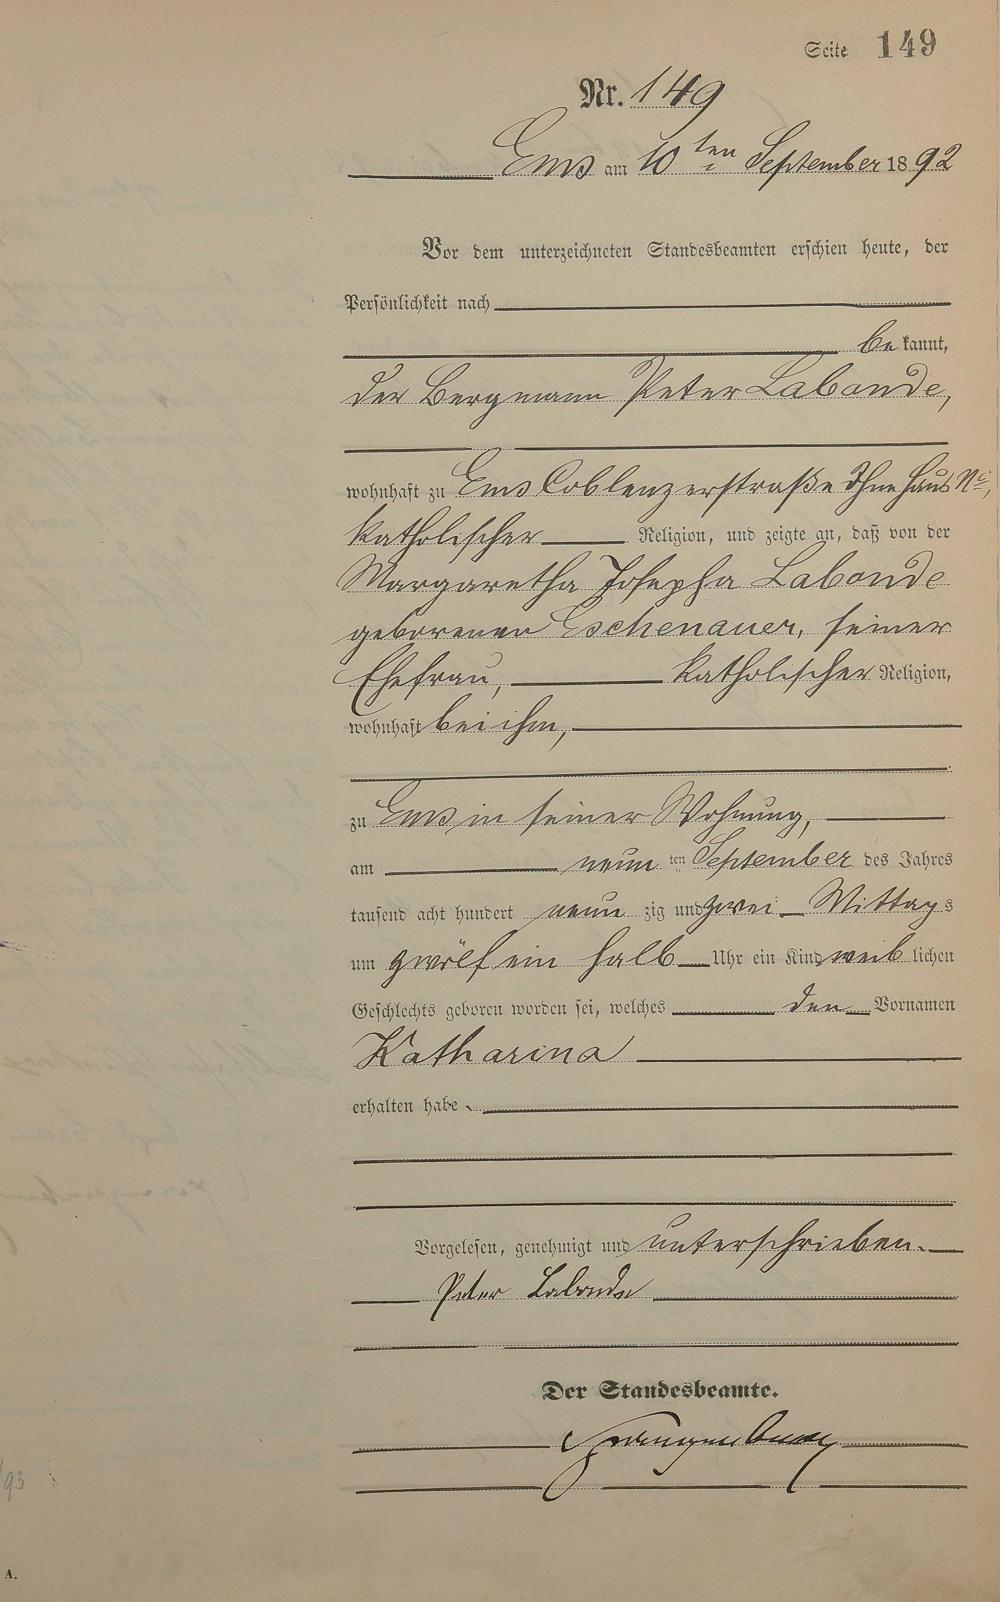 Seite 149
Nr. 149
Ems am 10ten September 1892
Vor dem unterzeichneten Standesbeamten erschien heute, der
Persönlichkeit nach
bekannt,
der Bergmann Peter Labonde,
wohnhaft zu Ems Coblenzerstraße Ohne Haus No,
katholischer Religion, und zeigte an, daß von der
Margaretha Josepha Labonde
geborenen Eschenauer, seiner
Ehefrau, katholischer Religion,
wohnhaft bei ihm,
zu Ems in seiner Wohnung,
am neunten September des Jahres
tausend acht hundert neunzig und zwei Mittags
um zwölf ein halb Uhr ein Kind weiblichen
Geschlechts geboren worden sei, welches den Vornamen
Katharina
erhalten habe.
Vorgelesen, genehmigt und unterschrieben.
Peter Labonde
Der Standesbeamte.
/93
A.